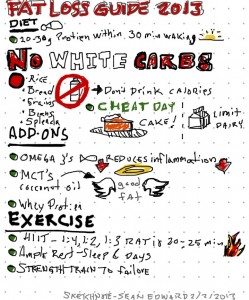 FAT LOSS GUIDE 2013
DIET
20-30g Protien within 30 min waking
NO WHITE CARBS
Rice
Bread
Grains
Beans
Splenda
→ Don't DRINK CALORIES
CHEAT DAY
CAKE!
Limit
DAIRY
ADD-ONS
OMEGA 3's
REDUCES inflammation
MCT's
coconut oil
good
FAT
Whey Protien
EXERCISE
HIIT - 1:4, 1:2, 1:3 20-25 min
Ample Rest-Sleep 6 DAYS
STRENGTH TRAIN to failure
SKETCHNOTE-SEAN EDWARD 2/2/2013